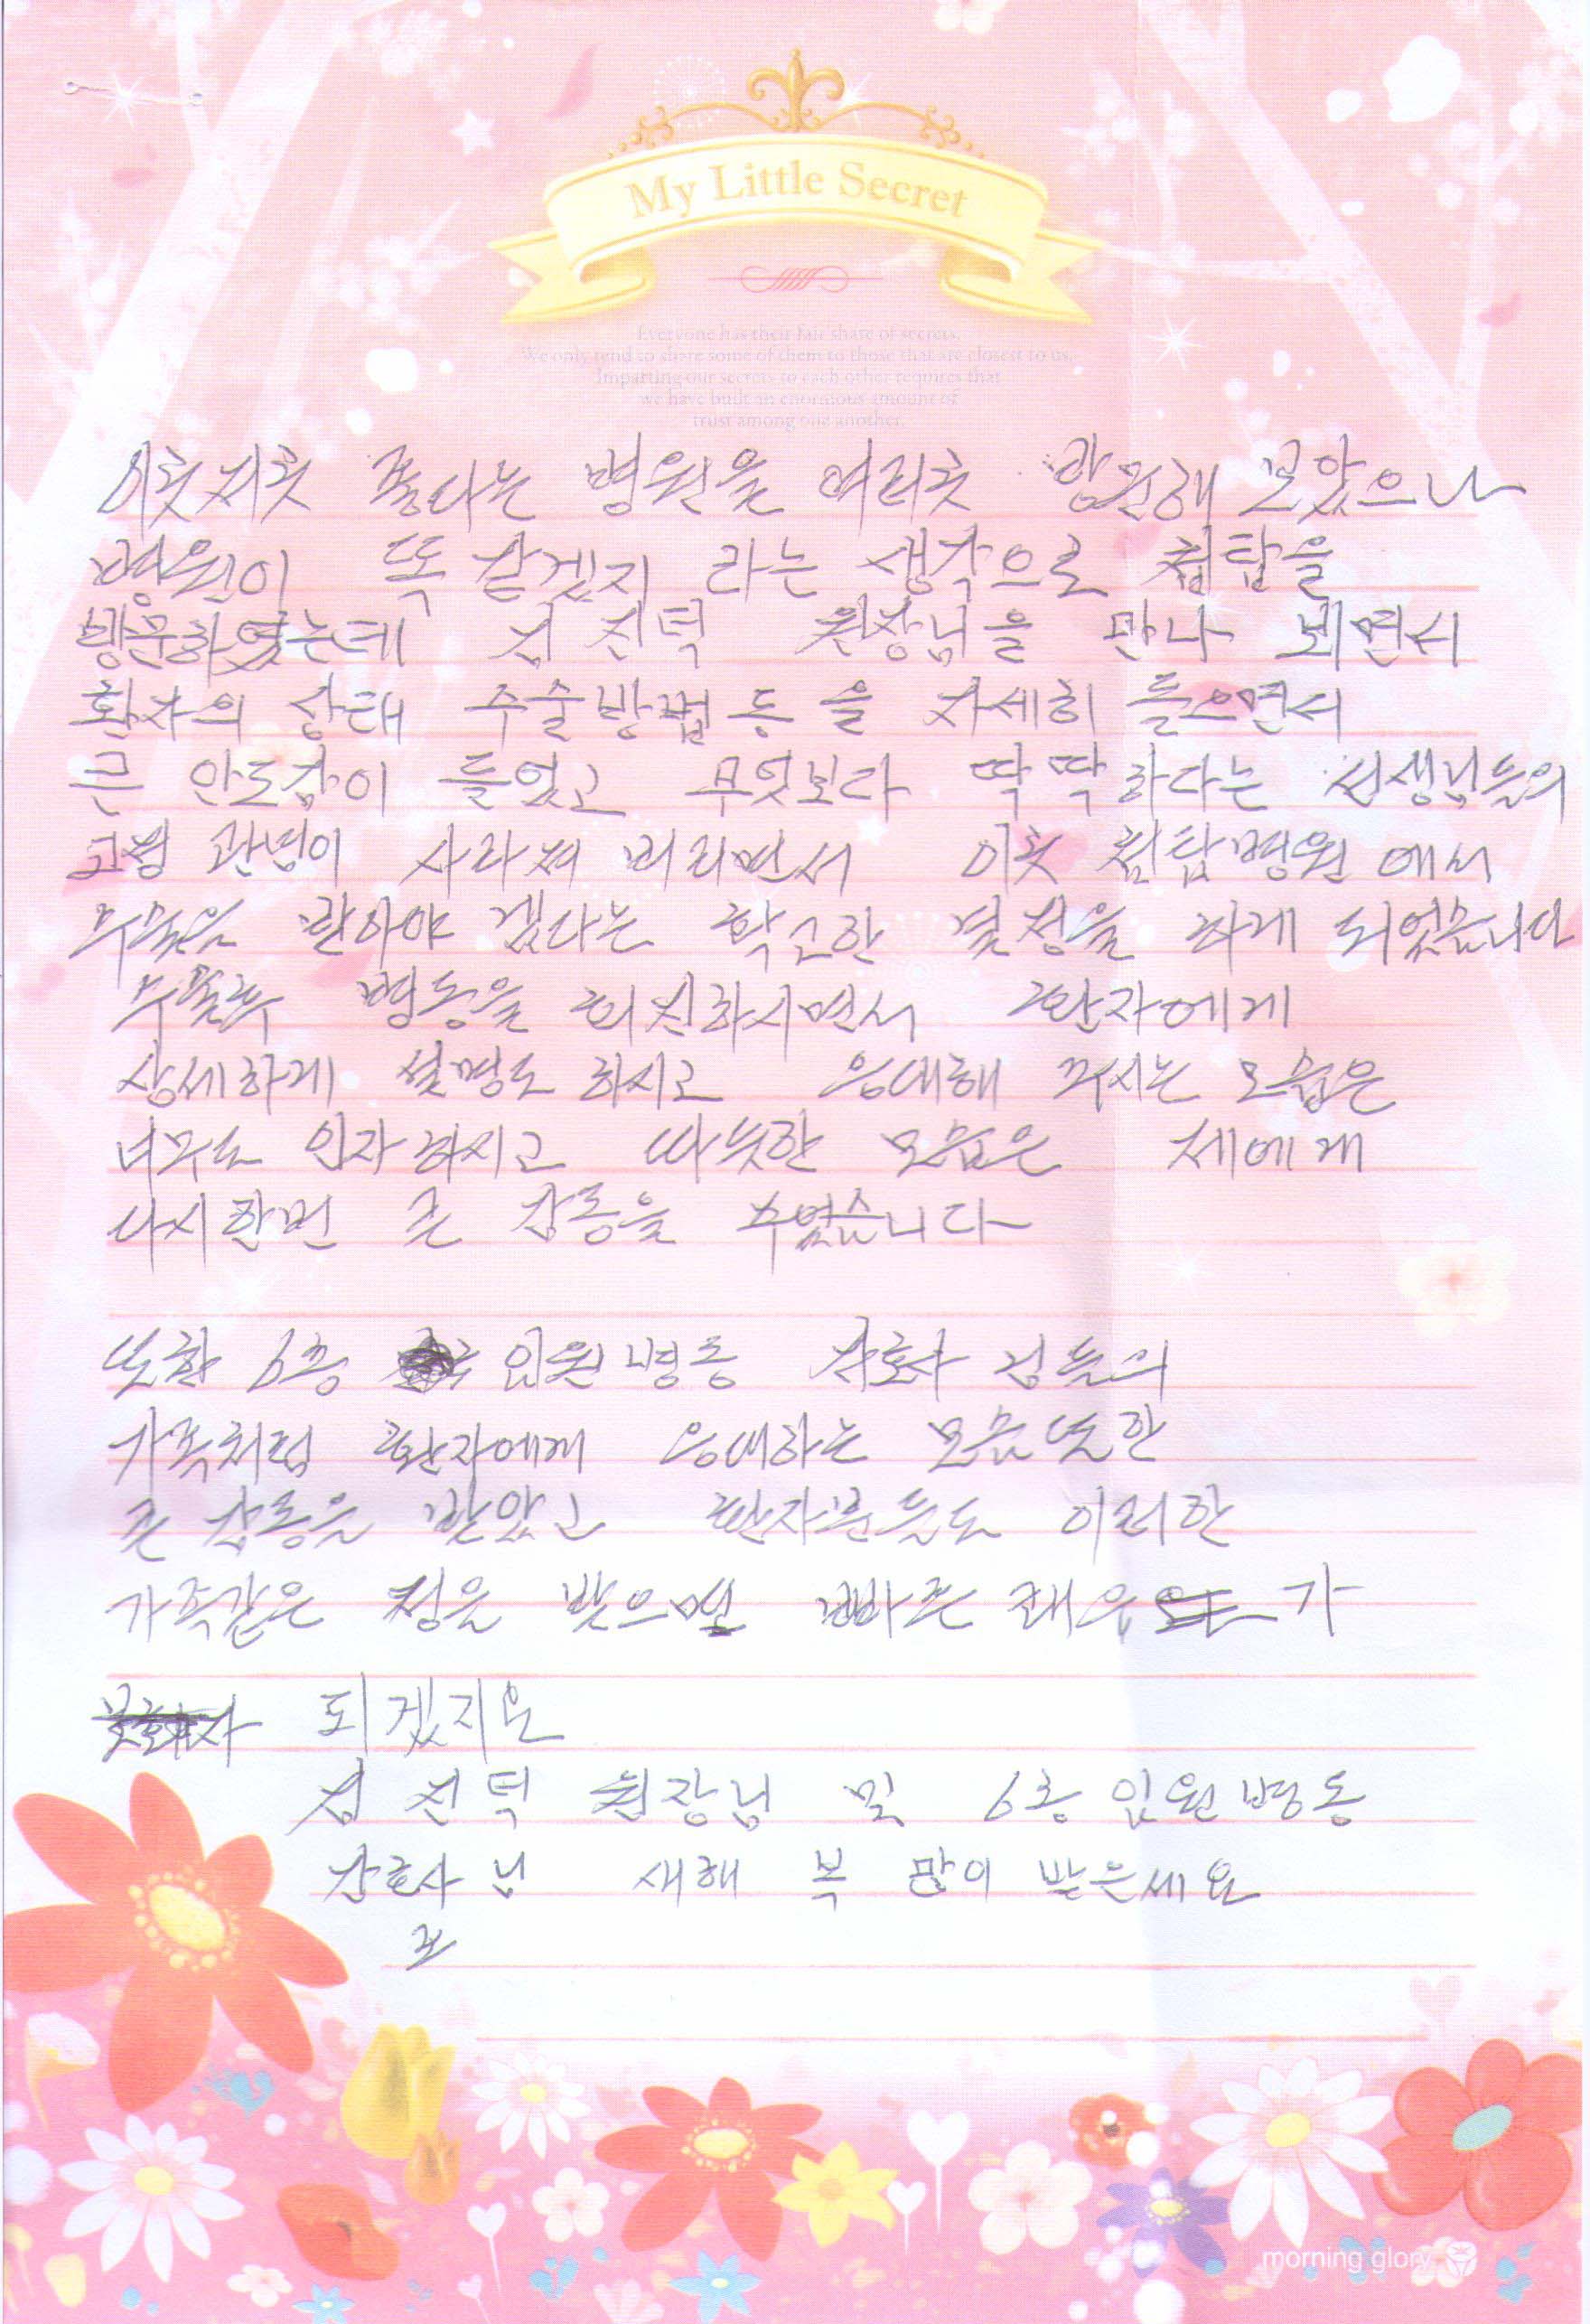 My Little Secret
Everyone has their fair share of secrets.
We only tend to share some of them to those that are closest to us.
Imparting our secrets to each other requires that
we have built an enormous amount of
trust among one another.
이곳저곳 좋다는 병원을 여러곳 방문해 보았으나
병원이 똑 같겠지 라는 생각으로 첨탑을
방문하였는데 서 진덕 원장님을 만나 뵈면서
환자의 상태 수술방법 등 을 자세히 들으면서
큰 안도감이 들었고 무엇보다 딱딱하다는 선생님들의
고정 관념이 사라져 버리면서 이곳 첨탑병원 에서
수술을 받아야 겠다는 확고한 결정을 하게 되었습니다
수술후 병동을 회진하시면서 환자에게
상세하게 설명도 하시고 응대해 주시는 모습은
너무도 인자하시고 따뜻한 모습은 제에게
다시한번 큰 감동을 주었습니다
또한 6층 입원병동 간호사 님들의
가족처럼 환자에게 응대하는 모습또한
큰 감동을 받았고 환자분들도 이러한
가족같은 정을 받으면 빠른 쾌유 가
되겠지요
진덕 원장님 및 6층 입원병동
간호사 님 새해 복 많이 받은세요
morning glory